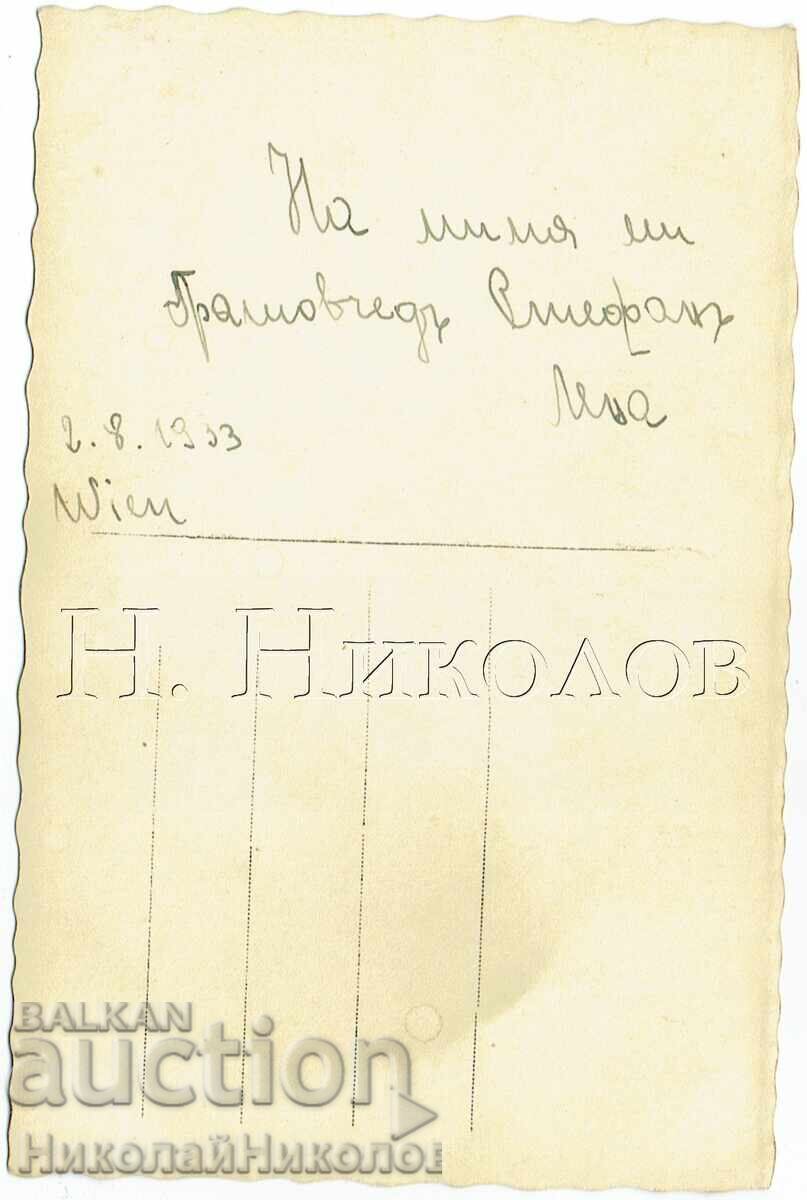 На милия ми
Братовчедъ Стефанъ
2.8.1933
Wien
Н. Николов
BALKAN
auction
НиколайНиколов